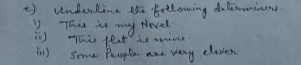 c) Underline the following determiners.
i) This is my Novel.
ii) This flat is mine
iii) Some People are very clever